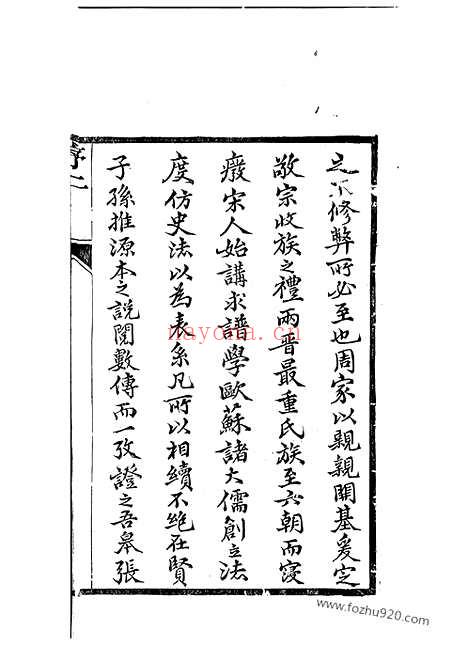 之不修弊所必至也周家以親親開基爰定
敬宗收族之禮兩晋最重氏族至六朝而寖
廢宋人始講求譜學歐蘇諸大儒創立法
度仿史法以為表系凡所以相續不絶在賢
子孫推源本之説閲數傳而一攷證之吾皋張
序二
nayona.cn
www.fozhu920.com